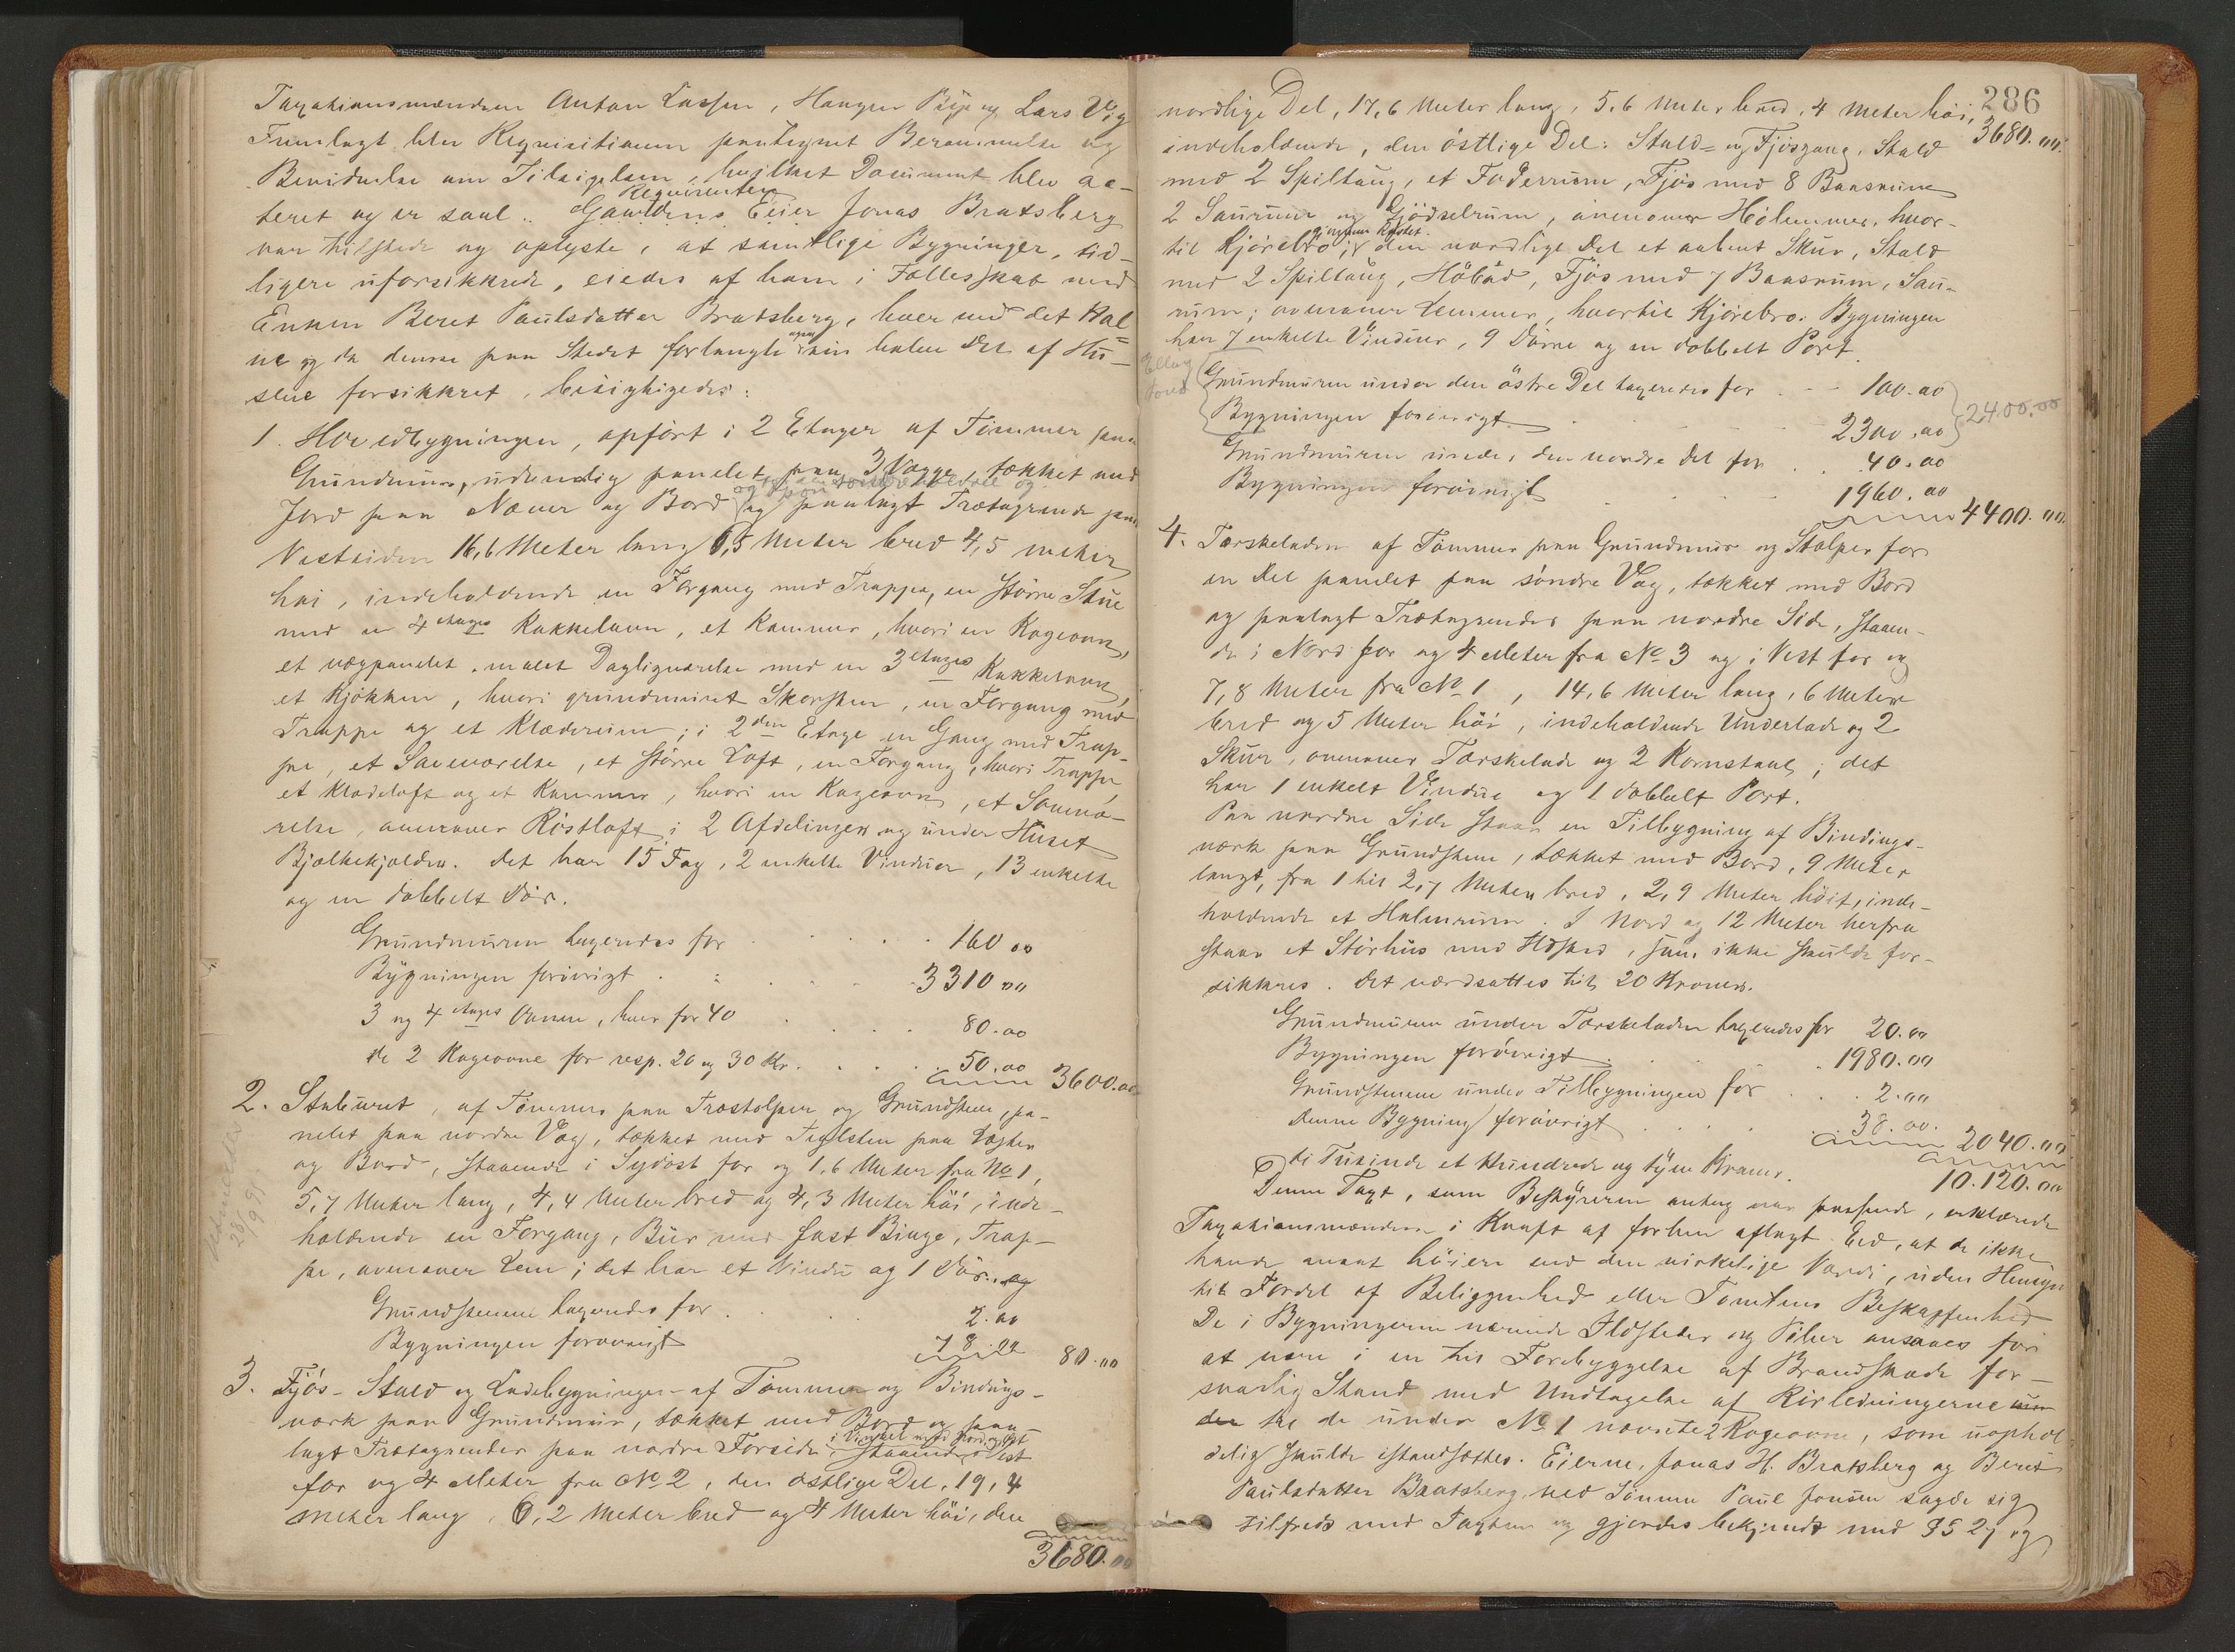 Taxationsmændene Anton Lassen, Haagen Bye og Lars Vig
Fremlagt blev Requisitionen paategnet Berammelse og
Bevidnelse om Tilsigelsen, hvilket Document blev ac-
teret og er saal.. Gaardens Eier Jonas Bratsberg
Requirenten
var tilstede og oplyste, at samtlige Bygninger, tid-
ligere uforsikkrede, eiedes af ham i Fællesskab med
Enken Beret Paulsdatter Bratsberg, hver med det Hal-
ve og da denne paa Stedet forlangte ogsaa sin halve Del af Hu-
sene forsikkret, besigtigedes:
1. Hovedbygningen, opført i 2 Etager af Tømmer paa
Grundmur, udvendig panelet paa 3 Vægge, tækket med
og Spon
Jord paa Næver og Bord og paalagt Trætagrende paa
Vestsiden 16,6 Meter lang 6,5 Meter bred 4,5 meter
høi, indeholdende en Forgang med Trappe, en større Stue
med en 4 etages Kakkelovn, et Kammer, hvori en Kogeovn,
et vægpanelet, malet Dagligværelse med en 3 etages Kakkelovn,
et Kjøkken, hvori grundmuret Skorsten, en Forgang med
Trappe og et Klæderum; i 2den Etage en Gang med Trap-
pe, et Soveværelse, et større Loft, en Forgang, hvori Trappe
et Klædeloft og et Kammer, hvori en Kogeovn, et Sovevæ-
relse, ovenover Røstloft i 2 Afdelinger og under Huset
Bjælkekjælder. Det har 15 Fag, 2 enkelte Vinduer, 13 enkelte
og en dobbelt Dør.
Grundmuren taxeredes for 160 00
Bygningen forøvrigt 3310 00
3 og 4 etages Ovnene, hver for 40 80.00
de 2 Kogeovne for resp. 20 og 30 Kr. 50.00 3600.00
2. Stabburet, af Tømmer paa Træstolper og Grundstene, pa-
nelet paa nordre Væg, tækket med Teglsten paa Lægter
og Bord, staaende i Sydost for og 1,6 Meter fra No 1,
5,7 Meter lang, 4,4 Meter bred og 4,3 Meter høi, inde-
holdende en Forgang, Bur med fast Binge, Trap-
pe, ovenover Lem; det har et Vindu og 1 Dør.
28/9 95.
Grundstenene taxeredes for 2.00
Bygningen forøvrigt 78.00 80.00
3. Fjøs- Stald og Ladebygningen af Tømmer og Bindings-
værk paa Grundmur, tækket med Bord og paa-
lagt Trætagrender paa nordre Forside, i Vinkel mod Nord og Øst staaende Vest
for og 4 Meter fra No 2, den østlige Del, 19,4
meter lang, 6,2 Meter bred og 4 Meter høi, den
3680.00
286
nordlige Del, 17,6 Meter lang, 5,6 Meter bred, 4 Meter høi, 3680.00.
indeholdende, den østlige Del: Stald- og Fjøsgang, Stald
med 2 Spiltaug, et Foderrum, Fjøs med 8 Baasrum
2 Saurum og Gjødselrum, ovenover Hølemmer, hvor-
til Kjørebro; i den nordlige Del et aabent Skur, Stald
med 2 Spiltaug, Høbod, Fjøs med 7 Baasrum, Sau-
rum; ovenover Lemmer, hvortil Kjørebro. Bygningen
har 7 enkelte Vinduer, 9 Dørre og en dobbelt Port.
Grundmuren under den østre Del taxeredes for 100.00
Bygningen forøvrigt 2300.00
2400.00
Grundmuren under den nordre Del for 40.00
Bygningen forøvrigt 1960.00
4400.00.
4. Tærskeladen af Tømmer paa Grundmur og Stolper for
en Del panelet paa søndre Væg, tækket med Bord
og paalagt Trætagrender paa nordre Side, staaen-
de i Nord for og 4 Meter fra No 3 og i Vest for og
7,8 Meter fra No 1, 14,6 Meter lang, 6 Meter
bred og 5 Meter høi, indeholdende Underlade og 2
Skur, ovenover Tærskelade og 2 Kornstaal; det
har 1 enkelt Vindue og 1 dobbelt Port.
Paa nordre Side staar en Tilbygning af Bindings-
værk paa Grundstene, tækket med Bord, 9 Meter
langt, fra 1 til 2,7 Meter bred, 2,9 Meter høit, inde-
holdende et Halmrum. I Nord og 12 Meter herfra
staar et Størhus med Ildsted, som ikke skulde for-
sikkres. Det værdsattes til 20 Kroner.
Grundmuren under Tærskeladen taxeredes for 20.00
Bygningen forøvrigt 1980.00
Grundstenene under Tilbygningen for 2.00
Denne Bygning forøvrigt 38.00.
2040.00
Ti Tusinde et Hundrede og tyve Kroner. 10.120.00
Denne Taxt, som Bestyreren antog var passende, erklærede
Taxationsmændene i Kraft af forhen aflagt Eed, at de ikke
havde ansat høiere end den virkelige Værdi, uden Hensyn
til Fordel af Beliggenhed eller Tomtens Beskaffenhed
De i Bygningerne værende Ildsteder og Piber ansaaes for
at være i en til Forebyggelse af Brandskade for-
svarlig Stand med Undtagelse af Rørledningerne
fra de under No 1 nævnte 2 Kogeovne, som uophol-
delig skulde istandsættes. Eierne, Jonas H. Bratsberg og Beret
Paulsdatter Bratsberg ved Sønnen Paul Jonsen sagde sig
tilfreds med Taxten og gjordes bekjendt med §§ 27 og